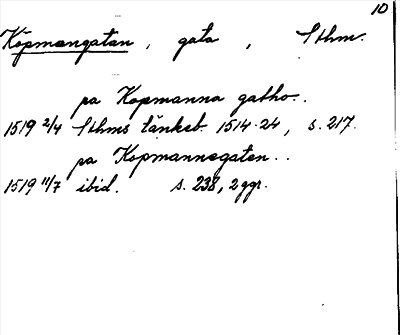 10
Köpmangatan, gata, Sthm.
pa Kopmanna gatho..
1519 2/4 Sthms tänkeb. 1514-24, s. 217.
pa Kopmannegaten..
1519 11/7 ibid. s. 238, 2 ggr.